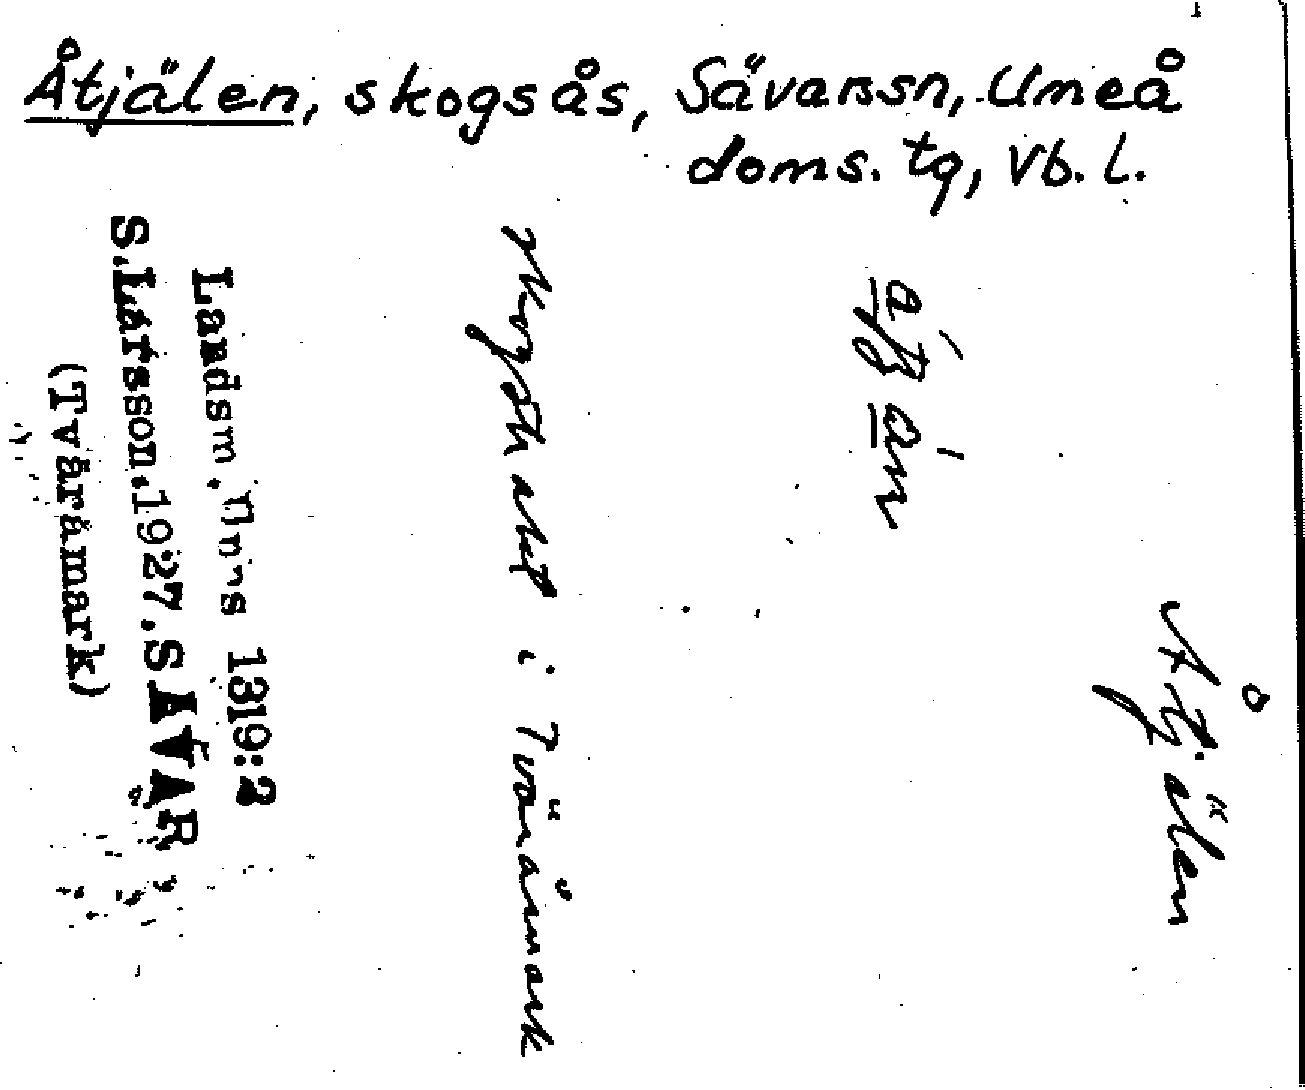 Åtjälen, skogsås, Sävarsn, Umeå
doms. tg, Vb. l.
Åtjälen
i Tväråmark
Landsm. Upps 1319:2
S.Larsson.1927.SÄVAR
(Tväråmark)